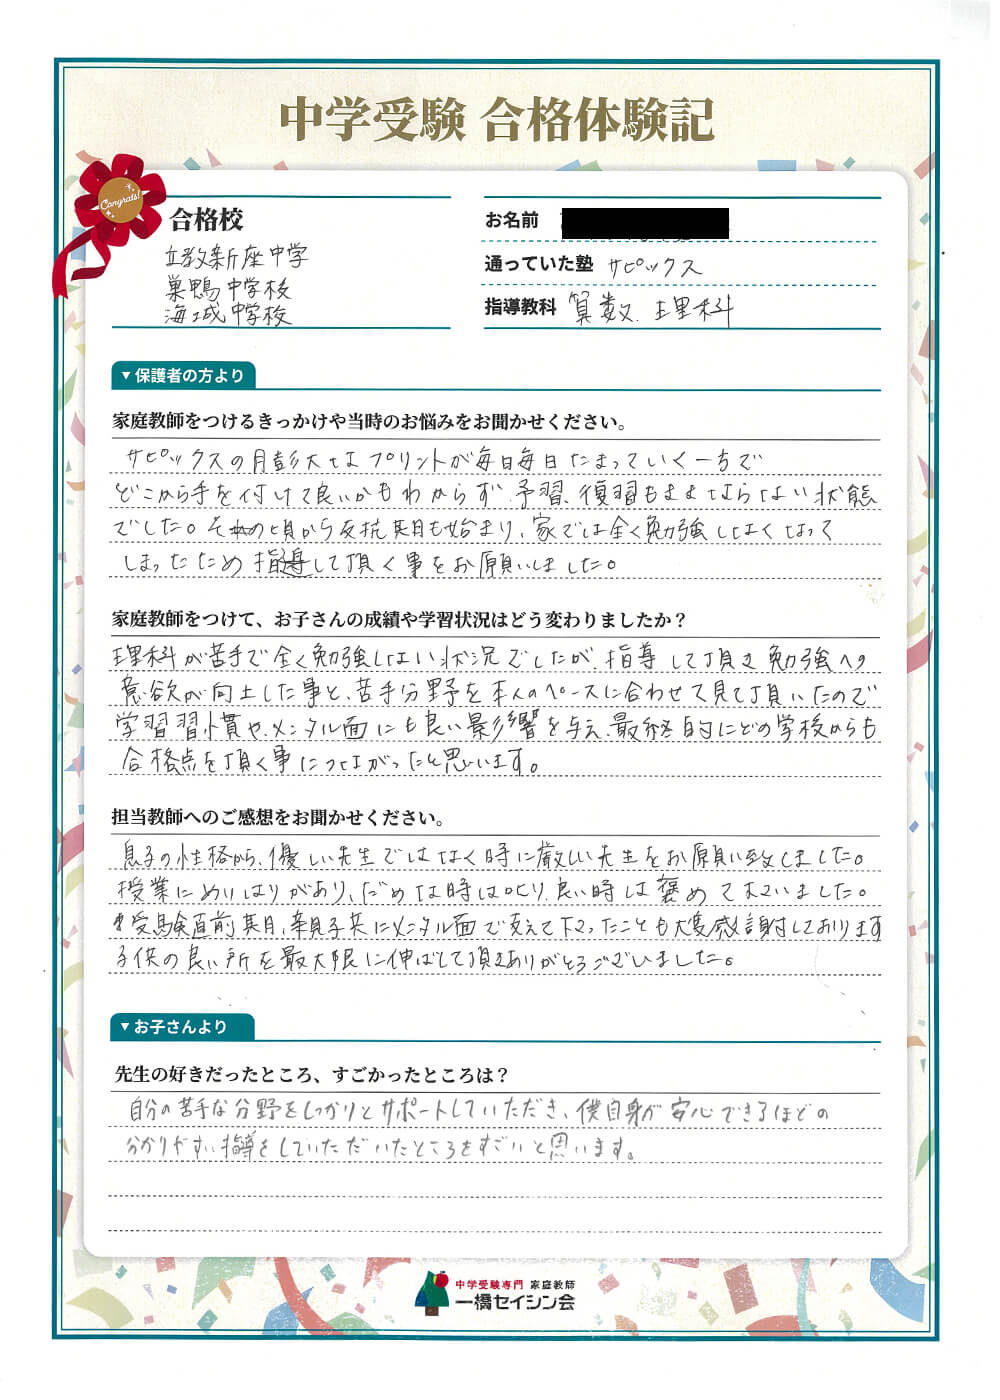 中学受験 合格体験記
Congrats!
合格校
立教新座中学
巣鴨中学校
海城中学校
お名前
通っていた塾 サピックス
指導教科 算数、理科
▼保護者の方より
家庭教師をつけるきっかけや当時のお悩みをお聞かせください。
サピックスの膨大なプリントが毎日毎日たまっていく一方で
どこから手を付けて良いかもわからず、予習、復習もままならない状態
でした。その頃から反抗期も始まり、家では全く勉強しなくなって
しまったため 指導して頂く事をお願いしました。
家庭教師をつけて、お子さんの成績や学習状況はどう変わりましたか？
理科が苦手で全く勉強しない状況でしたが、指導して頂き勉強への
意欲が向上した事と、苦手分野を本人のペースに合わせて見て頂いたので
学習習慣や、メンタル面にも良い影響を与え、最終的にどの学校からも
合格点を頂く事につながったと思います。
担当教師へのご感想をお聞かせください。
息子の性格から、優しい先生ではなく時に厳しい先生をお願い致しました。
授業にめりはりがあり、だめな時は叱り、良い時は褒めて下さいました。
受験直前期、親子共にメンタル面で支えて下さったことも大変感謝しております
子供の良い所を最大限に伸ばして頂きありがとうございました。
▼お子さんより
先生の好きだったところ、すごかったところは？
自分の苦手な分野をしっかりとサポートしていただき、僕自身が安心できるほどの
分かりやすい指導をしていただいたところをすごいと思います。
中学受験専門 家庭教師
一橋セイシン会